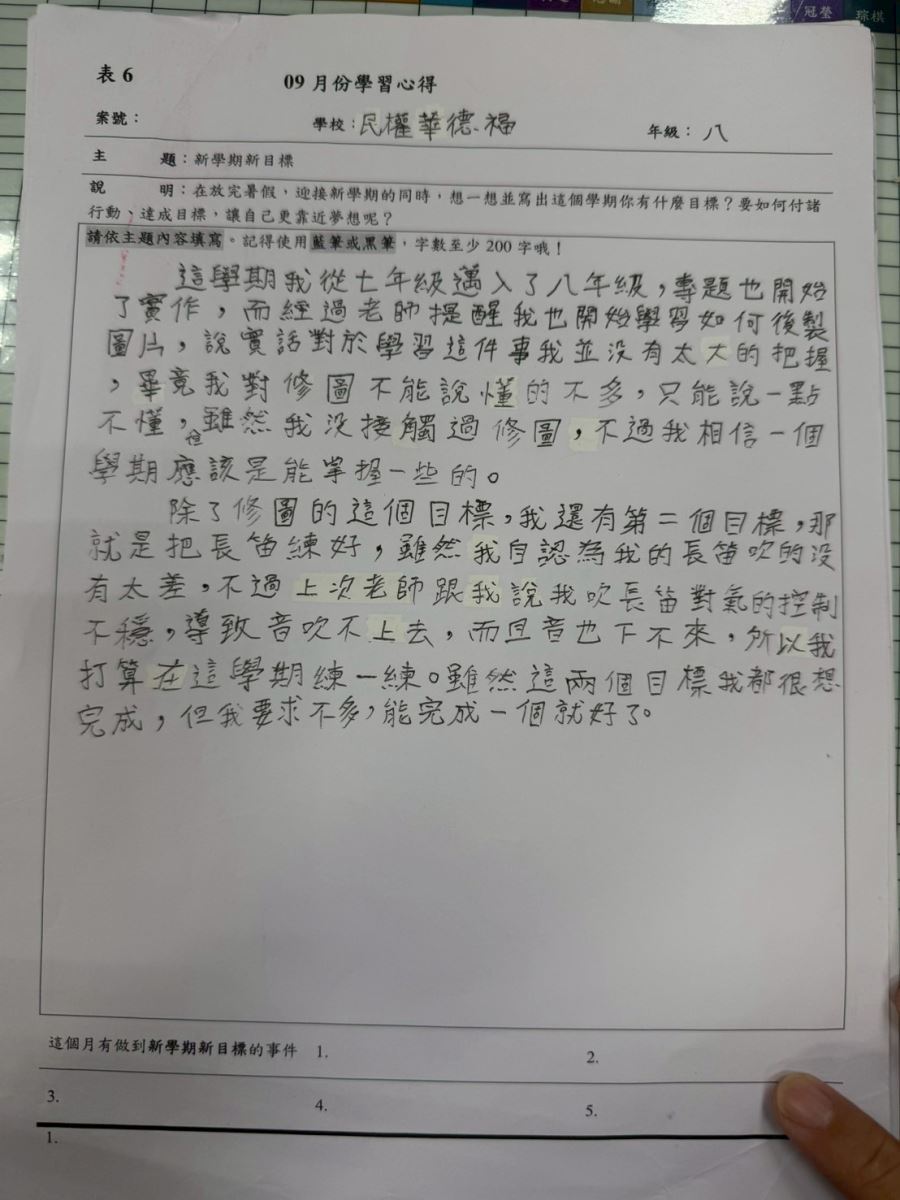 冠瑩
琮棋
表 6
09 月份學習心得
案號：
學校：民權華德福
年級：八
主 題：新學期新目標
說 明：在放完暑假，迎接新學期的同時，想一想並寫出這個學期你有什麼目標？要如何付諸
行動、達成目標，讓自己更靠近夢想呢？
請依主題內容填寫。記得使用藍筆或黑筆，字數至少 200 字哦！
這學期我從七年級邁入了八年級，專題也開始
了實作，而經過老師提醒我也開始學習如何後製
圖片，說實話對於學習這件事我並沒有太大的把握
，畢竟我對修圖不能說懂的不多，只能說一點
不懂，雖然我沒接觸過修圖，不過我相信一個
學期應該是能掌握一些的。
除了修圖的這個目標，我還有第二個目標，那
就是把長笛練好，雖然我自認為我的長笛吹的沒
有太差，不過上次老師跟我說我吹長笛對氣的控制
不穩，導致音吹不上去，而且音也下不來，所以我
打算在這學期練一練。雖然這兩個目標我都很想
完成，但我要求不多，能完成一個就好了。
這個月有做到新學期新目標的事件 1.
2.
3.
4.
5.
1.